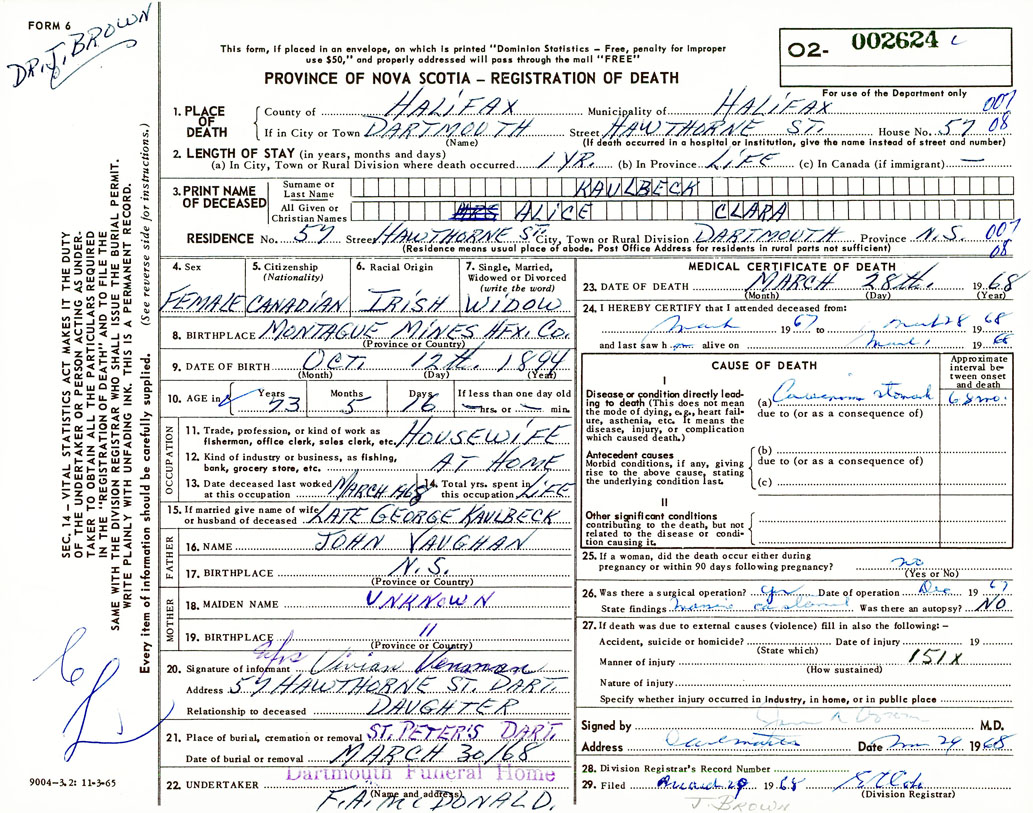 FORM 6
DR. J. BROWN
This form, if placed in an envelope, on which is printed "Dominion Statistics – Free, penalty for improper
use $50," and properly addressed will pass through the mail "FREE"
PROVINCE OF NOVA SCOTIA – REGISTRATION OF DEATH
O2- 002624
For use of the Department only
1. PLACE OF DEATH County of HALIFAX Municipality of HALIFAX 007
If in City or Town DARTMOUTH Street HAWTHORNE ST. House No. 57 08
(Name) (If death occurred in a hospital or institution, give the name instead of street and number)
2. LENGTH OF STAY (in years, months and days)
(a) In City, Town or Rural Division where death occurred 1 YR. (b) In Province LIFE (c) In Canada (if immigrant) —
3. PRINT NAME OF DECEASED
Surname or Last Name KAULBECK
All Given or Christian Names MRS ALICE CLARA
RESIDENCE No. 57 Street HAWTHORNE ST. City, Town or Rural Division DARTMOUTH Province N.S. 007
(Residence means usual place of abode. Post Office Address for residents in rural parts not sufficient) 08
4. Sex FEMALE
5. Citizenship (Nationality) CANADIAN
6. Racial Origin IRISH
7. Single, Married, Widowed or Divorced (write the word) WIDOW
8. BIRTHPLACE MONTAGUE MINES HFX. CO.
(Province or Country)
9. DATE OF BIRTH OCT. 12th. 1894
(Month) (Day) (Year)
10. AGE in Years 73 Months 5 Days 16 If less than one day old — hrs. or — min.
OCCUPATION
11. Trade, profession, or kind of work as fisherman, office clerk, sales clerk, etc. HOUSEWIFE
12. Kind of industry or business, as fishing, bank, grocery store, etc. AT HOME
13. Date deceased last worked at this occupation MARCH 1968 14. Total yrs. spent in this occupation LIFE
15. If married give name of wife or husband of deceased LATE GEORGE KAULBECK
FATHER
16. NAME JOHN VAUGHAN
17. BIRTHPLACE N.S.
(Province or Country)
MOTHER
18. MAIDEN NAME UNKNOWN
19. BIRTHPLACE "
(Province or Country)
20. Signature of informant Mrs Vivian Vensman
Address 57 HAWTHORNE ST. DART.
Relationship to deceased DAUGHTER
21. Place of burial, cremation or removal ST. PETER'S DART.
Date of burial or removal MARCH 30/68
Dartmouth Funeral Home
22. UNDERTAKER F.A. McDONALD.
(Name and address)
MEDICAL CERTIFICATE OF DEATH
23. DATE OF DEATH MARCH 28th. 1968
(Month) (Day) (Year)
24. I HEREBY CERTIFY that I attended deceased from:
March 1967 to March 28 1968
and last saw h alive on March 1968
CAUSE OF DEATH
Approximate interval between onset and death
I
Disease or condition directly leading to death (This does not mean the mode of dying, e.g., heart failure, asthenia, etc. It means the disease, injury, or complication which caused death.)
(a) Carcinoma stomach 6 mo.
due to (or as a consequence of)
Antecedent causes
Morbid conditions, if any, giving rise to the above cause, stating the underlying condition last.
(b)
due to (or as a consequence of)
(c)
II
Other significant conditions
contributing to the death, but not related to the disease or condition causing it.
25. If a woman, did the death occur either during pregnancy or within 90 days following pregnancy? no
(Yes or No)
26. Was there a surgical operation? yes Date of operation Dec 1967
State findings Was there an autopsy? NO
27. If death was due to external causes (violence) fill in also the following: –
Accident, suicide or homicide? Date of injury 19
(State which)
Manner of injury 151X
(How sustained)
Nature of injury
Specify whether injury occurred in industry, in home, or in public place
Signed by M.D.
Address Dartmouth Date Mar 29 1968
28. Division Registrar's Record Number
29. Filed March 29 1968
(Division Registrar)
J. BROWN
SEC. 14 – VITAL STATISTICS ACT MAKES IT THE DUTY
OF THE UNDERTAKER OR PERSON ACTING AS UNDER-
TAKER TO OBTAIN ALL THE PARTICULARS REQUIRED
IN THE "REGISTRATION OF DEATH" AND TO FILE THE
SAME WITH THE DIVISION REGISTRAR WHO SHALL ISSUE THE BURIAL PERMIT.
WRITE PLAINLY WITH UNFADING INK. THIS IS A PERMANENT RECORD.
Every item of information should be carefully supplied. (See reverse side for instructions.)
9004-3.2: 11-3-65